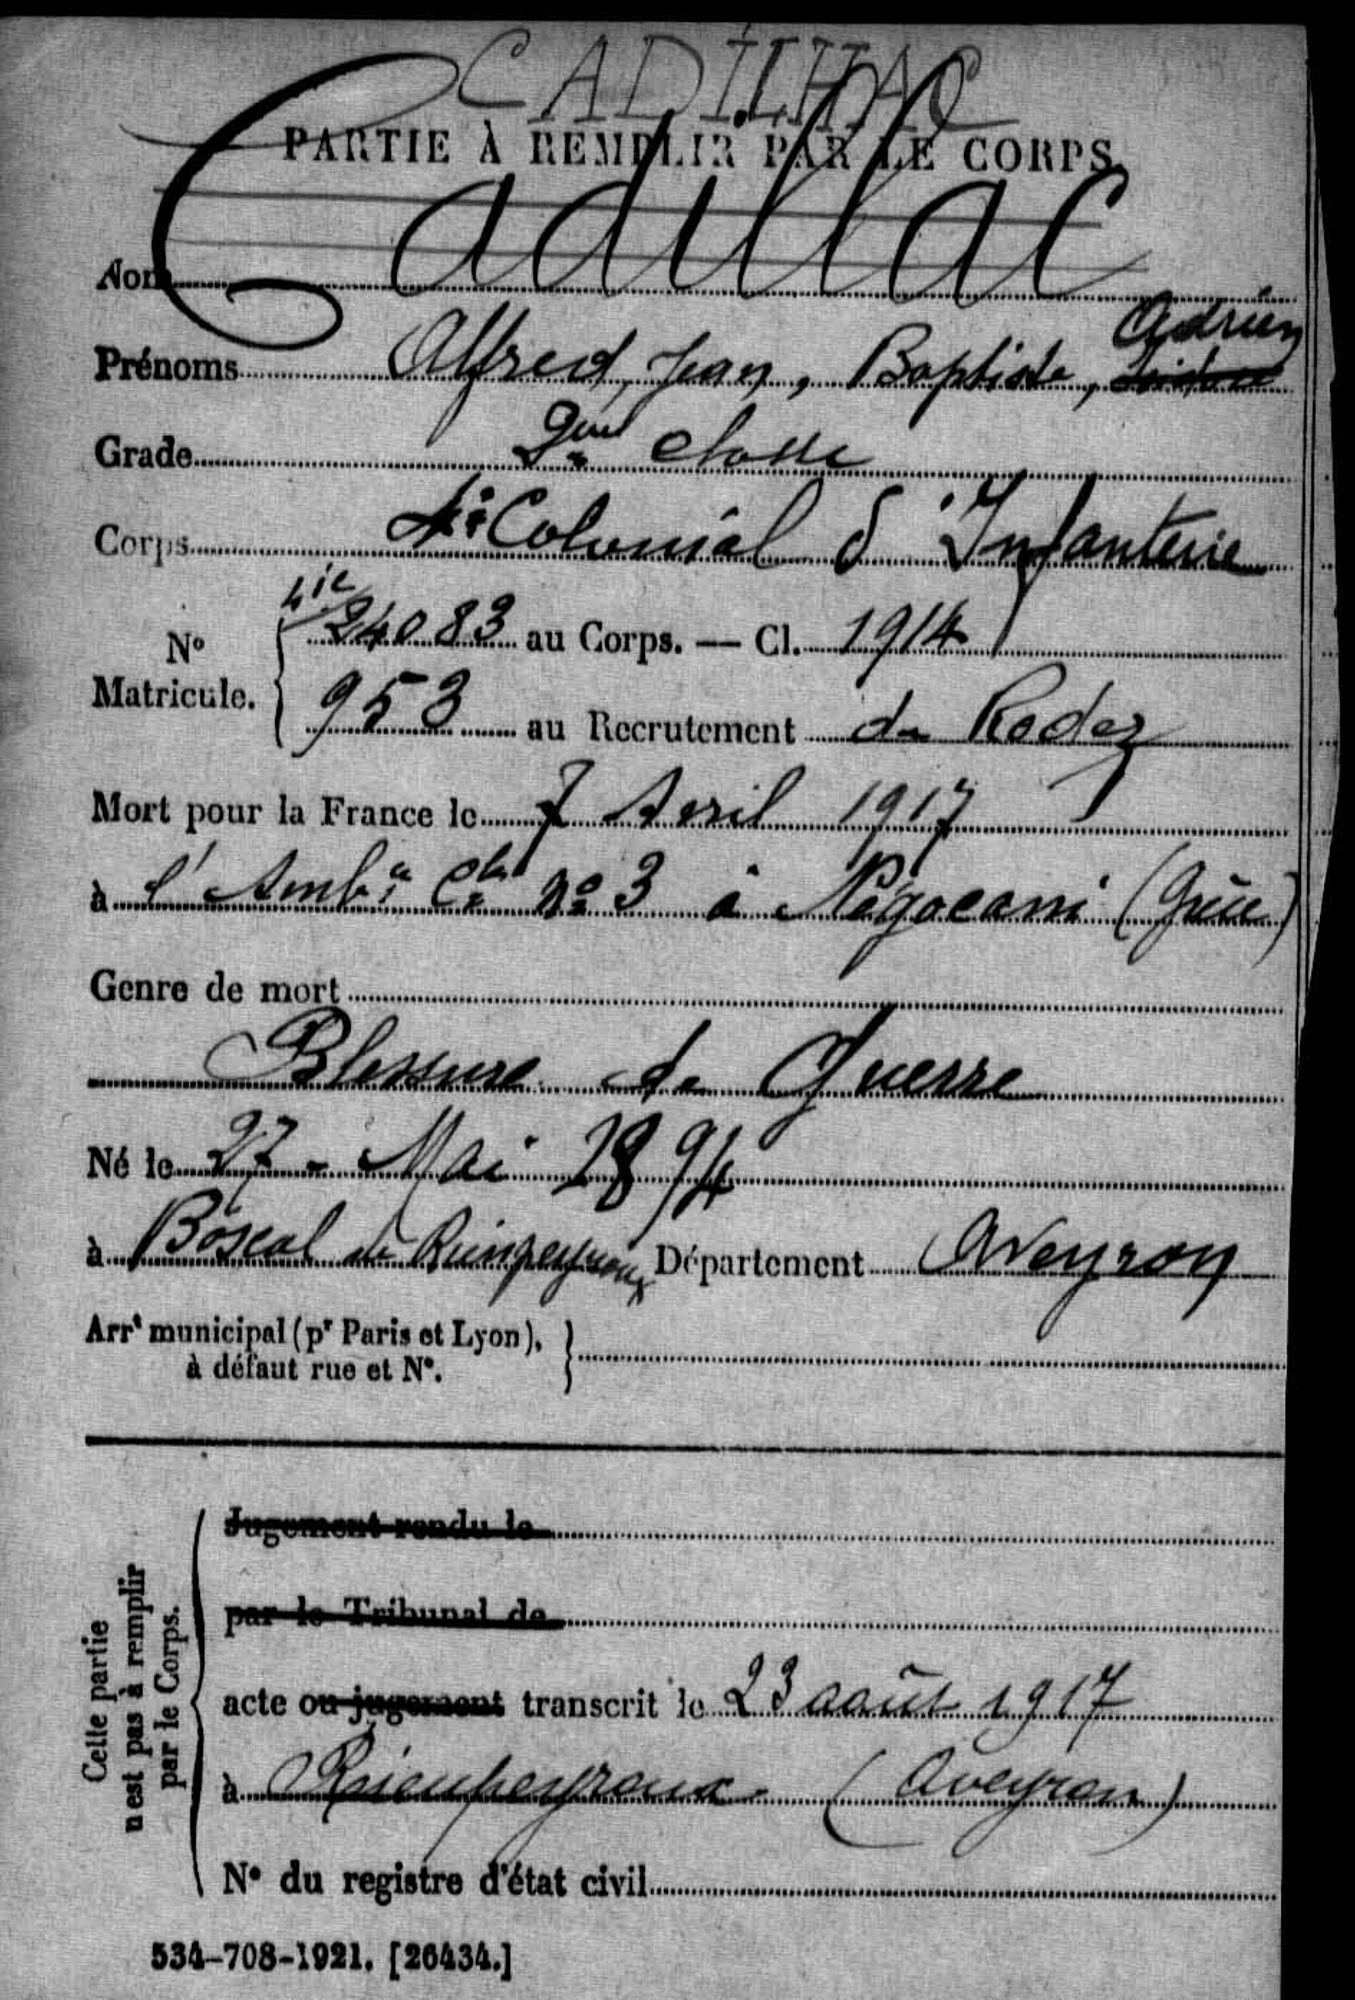 CADILHAC
PARTIE À REMPLIR PAR LE CORPS
Nom Cadillac
Adrien
Prénoms Alfred, Jean, Baptiste,
Grade 2me classe
Corps 4e Colonial d'Infanterie
4ie
N° Matricule. 24083 au Corps. — Cl. 1914
953 au Recrutement de Rodez
Mort pour la France le 7 Avril 1917
à l'Ambce N° 3 à Négocani (Grèce)
Genre de mort
Blessure de Guerre
Né le 27 - Mai 1894
à Boscal de Rieupeyroux Département Aveyron
Arrt municipal (pr Paris et Lyon),
à défaut rue et N°.
Jugement rendu le
par le Tribunal de
acte ou jugement transcrit le 23 août 1917
à Rieupeyroux (Aveyron)
N° du registre d'état civil
Cette partie
n'est pas à remplir
par le Corps.
534-708-1921. [26434.]